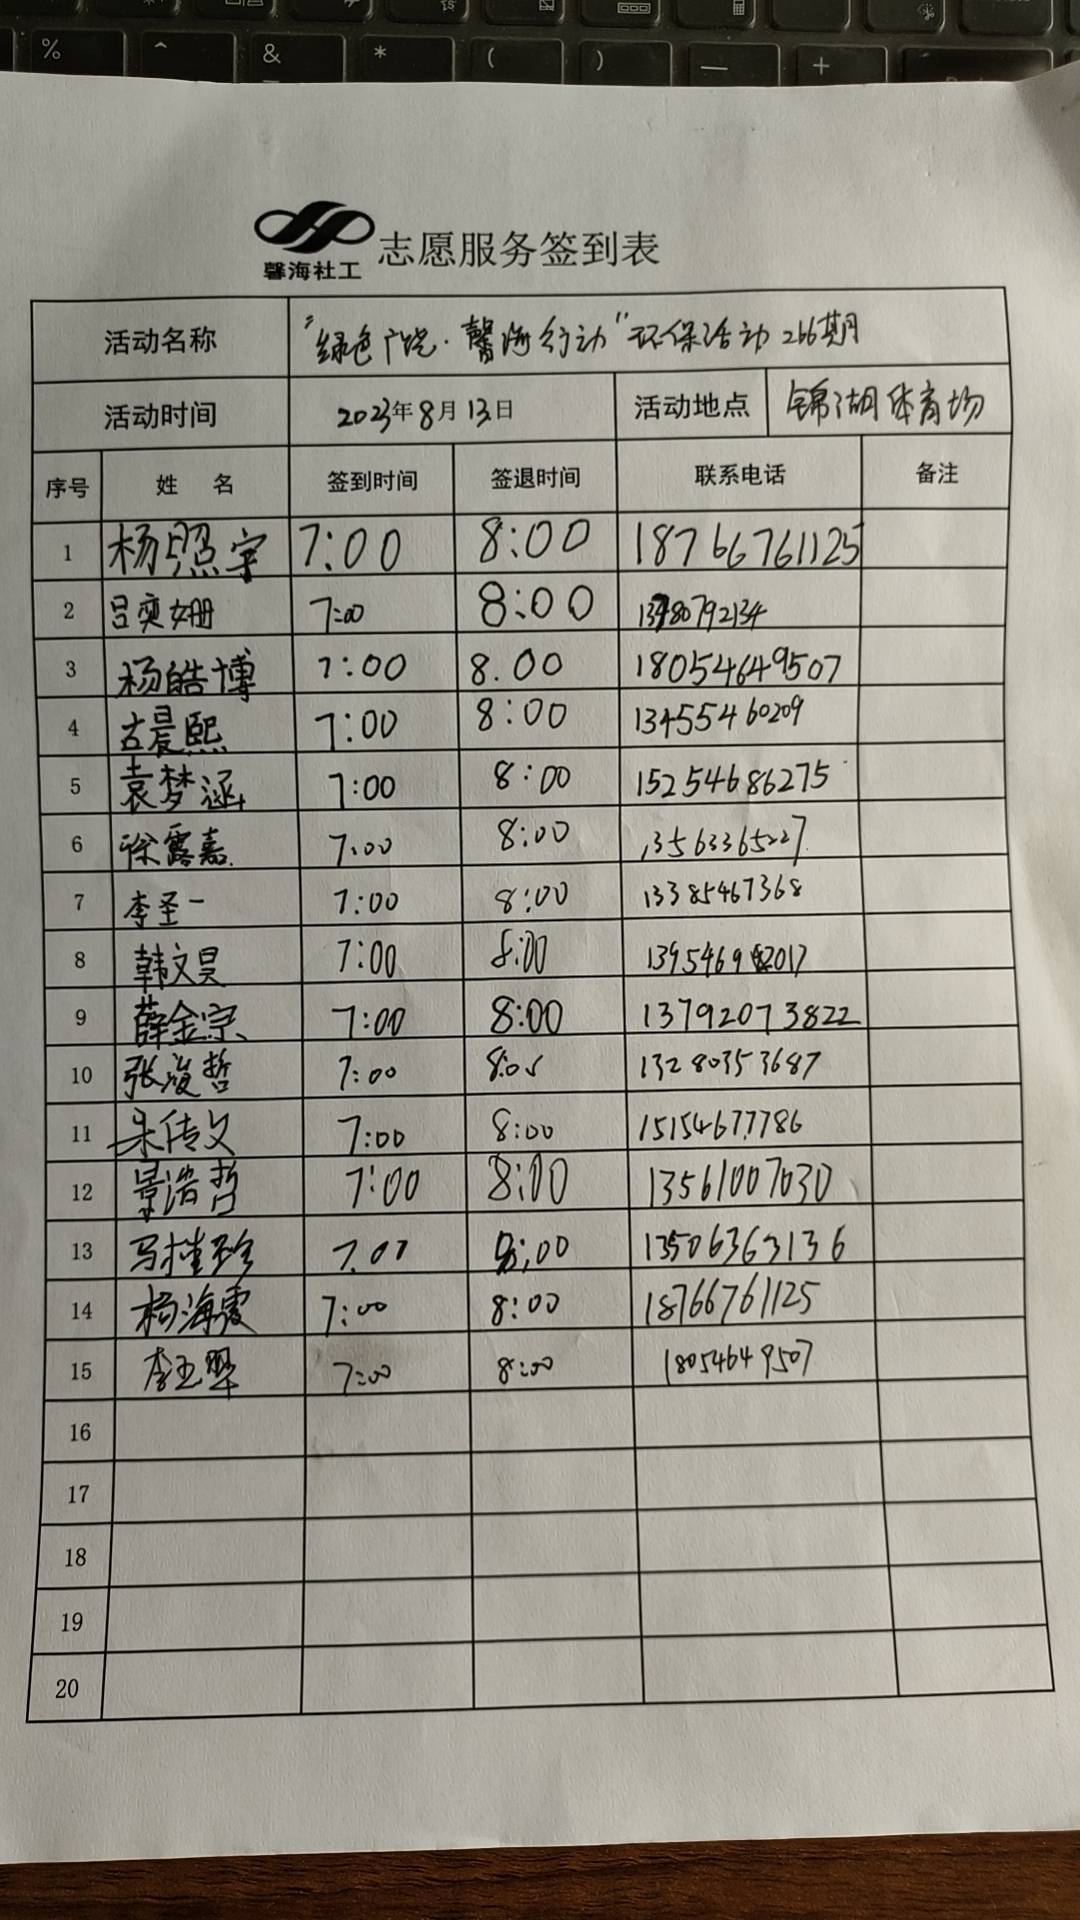 馨海社工 志愿服务签到表
活动名称 "绿色广饶·馨海行动"环保活动266期
活动时间 2023年8月13日 活动地点 锦湖体育场
序号 姓 名 签到时间 签退时间 联系电话 备注
1 杨照宇 7:00 8:00 18766761125
2 吕奕姗 7:00 8:00
3 杨皓博 7:00 8.00 18054649507
4 古晨熙 7:00 8:00 13455460209
5 袁梦涵 7:00 8:00 15254686275
6 徐露嘉 7:00 8:00 13563365227
7 李圣一 7:00 8:00 13385467368
8 韩文昊 7:00 8:00
9 薛金宗 7:00 8:00 13792073822
10 张浚哲 7:00 8:00 13280353687
11 朱传文 7:00 8:00 15154677786
12 景浩哲 7:00 8:00 13561007030
13 马 7.00 8:00 13506363136
14 杨海霞 7:00 8:00 18766761125
15 李玉翠 7:00 8:00 18054649507
16
17
18
19
20